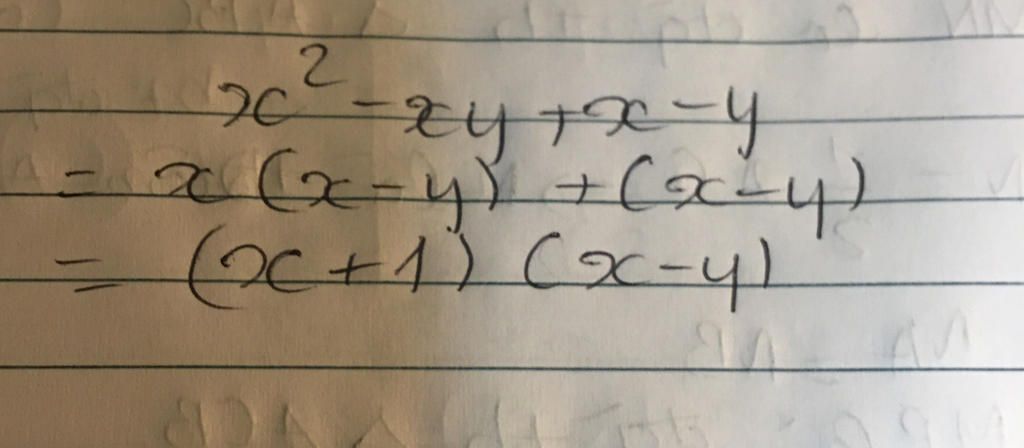 x² - xy + x - y
= x (x - y) + (x - y)
= (x + 1) (x - y)